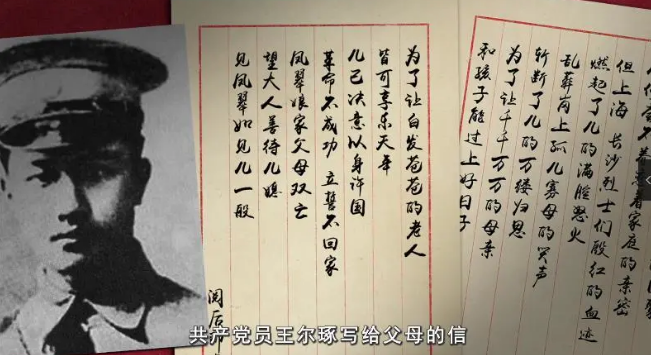 眷恋着家庭的亲密
但上海 长沙烈士们殷红的血迹
燃起了儿的满腔怒火
乱葬岗上孤儿寡母的哭声
斩断了儿的万缕归思
为了让千千万万的母亲
和孩子能过上好日子
为了让白发苍苍的老人
皆可享乐天年
儿已决意以身许国
革命不成功 立誓不回家
凤翠娘家父母双亡
望大人善待儿媳
见凤翠如见儿一般
阅后
共产党员王尔琢写给父母的信